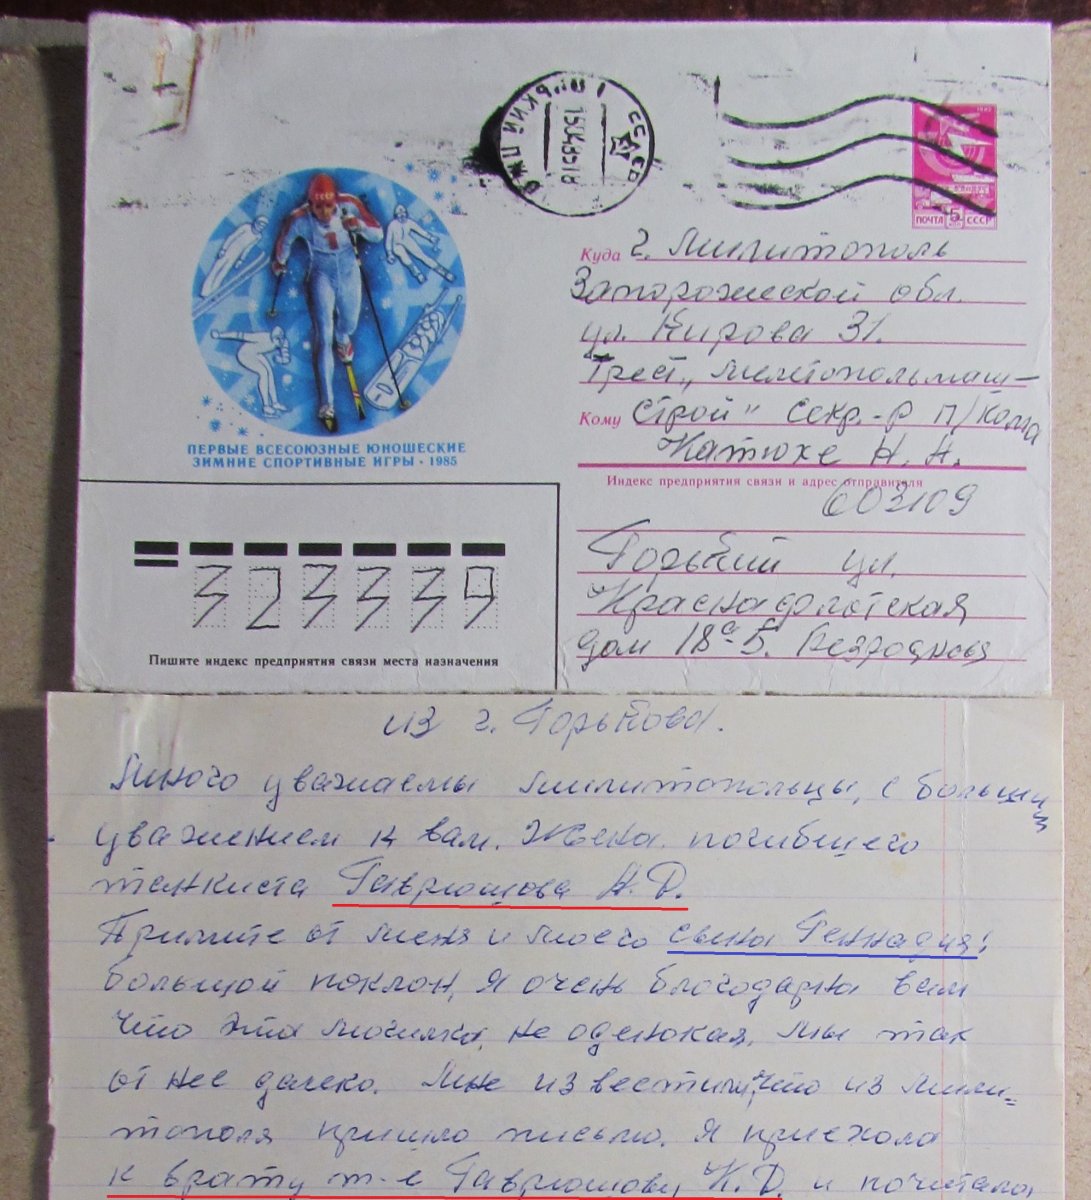 СССР
15 04 85 18
ПОЧТА 5 СССР
ПЕРВЫЕ ВСЕСОЮЗНЫЕ ЮНОШЕСКИЕ
ЗИМНИЕ СПОРТИВНЫЕ ИГРЫ · 1985
Куда г. Милитополь
Запорожской обл.
ул. Кирова 31.
Трест „Мелитопольмаш-
Кому строй" секр.-р п/кома
Катюхе Н. Н.
Индекс предприятия связи и адрес отправителя
603109
Горький ул.
Краснафлотская
дом 18а-5.
323339
Пишите индекс предприятия связи места назначения
из г. Горькова.
Много уважаемы милитопольцы, с большим
уважением к вам. Жена погибшего
танкиста Гаврюшова Н.Д.
Примите от меня и моего сына Геннадия;
большой поклон, Я очень благодарна вам
что эта могилка, не одинокая, мы так
от нее далеко. Мне известили, что из мили=
тополя пришло письмо. Я приехала
к брату т-е Гаврюшову К.Д. и почитала